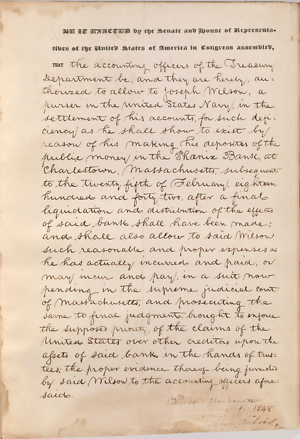 BE IT ENACTED by the Senate and House of Representa-
tives of the United States of America in Congress assembled,
THAT the accounting officers of the Treasury
Department be, and they are hereby, au-
thorized to allow to Joseph Wilson, a
purser in the United States Navy, in the
settlement of his accounts, for such defi-
ciency as he shall show to exist by
reason of his making his deposites of the
public money in the Phœnix Bank, at
Charlestown, Massachusetts, subsequent
to the twenty fifth of February, eighteen
hundred and forty two, after a final
liquidation and distribution of the effects
of said bank shall have been made;
and shall also allow to said Wilson
such reasonable and proper expenses as
he has actually incurred and paid, or
may incur and pay, in a suit now
pending in the supreme judicial court
of Massachusetts, and prosecuting the
same to final judgment, brought to enforce
the supposed priority of the claims of the
United States over other creditors upon the
assets of said bank in the hands of trus-
tees, the proper evidence thereof being furnished
by said Wilson to the accounting officers afore-
said.
1848